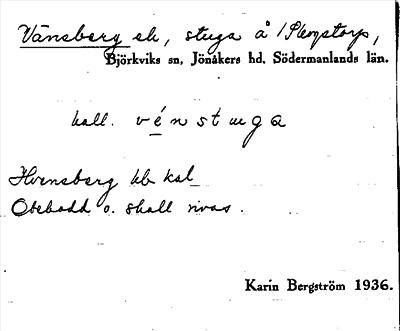 Vänsberg ek, stuga å /Slogstorp,
Björkviks sn, Jönåkers hd, Södermanlands län.
kall. vénstuga
Hvensberg hb kal
Obebodd o. skall rivas.
Karin Bergström 1936.